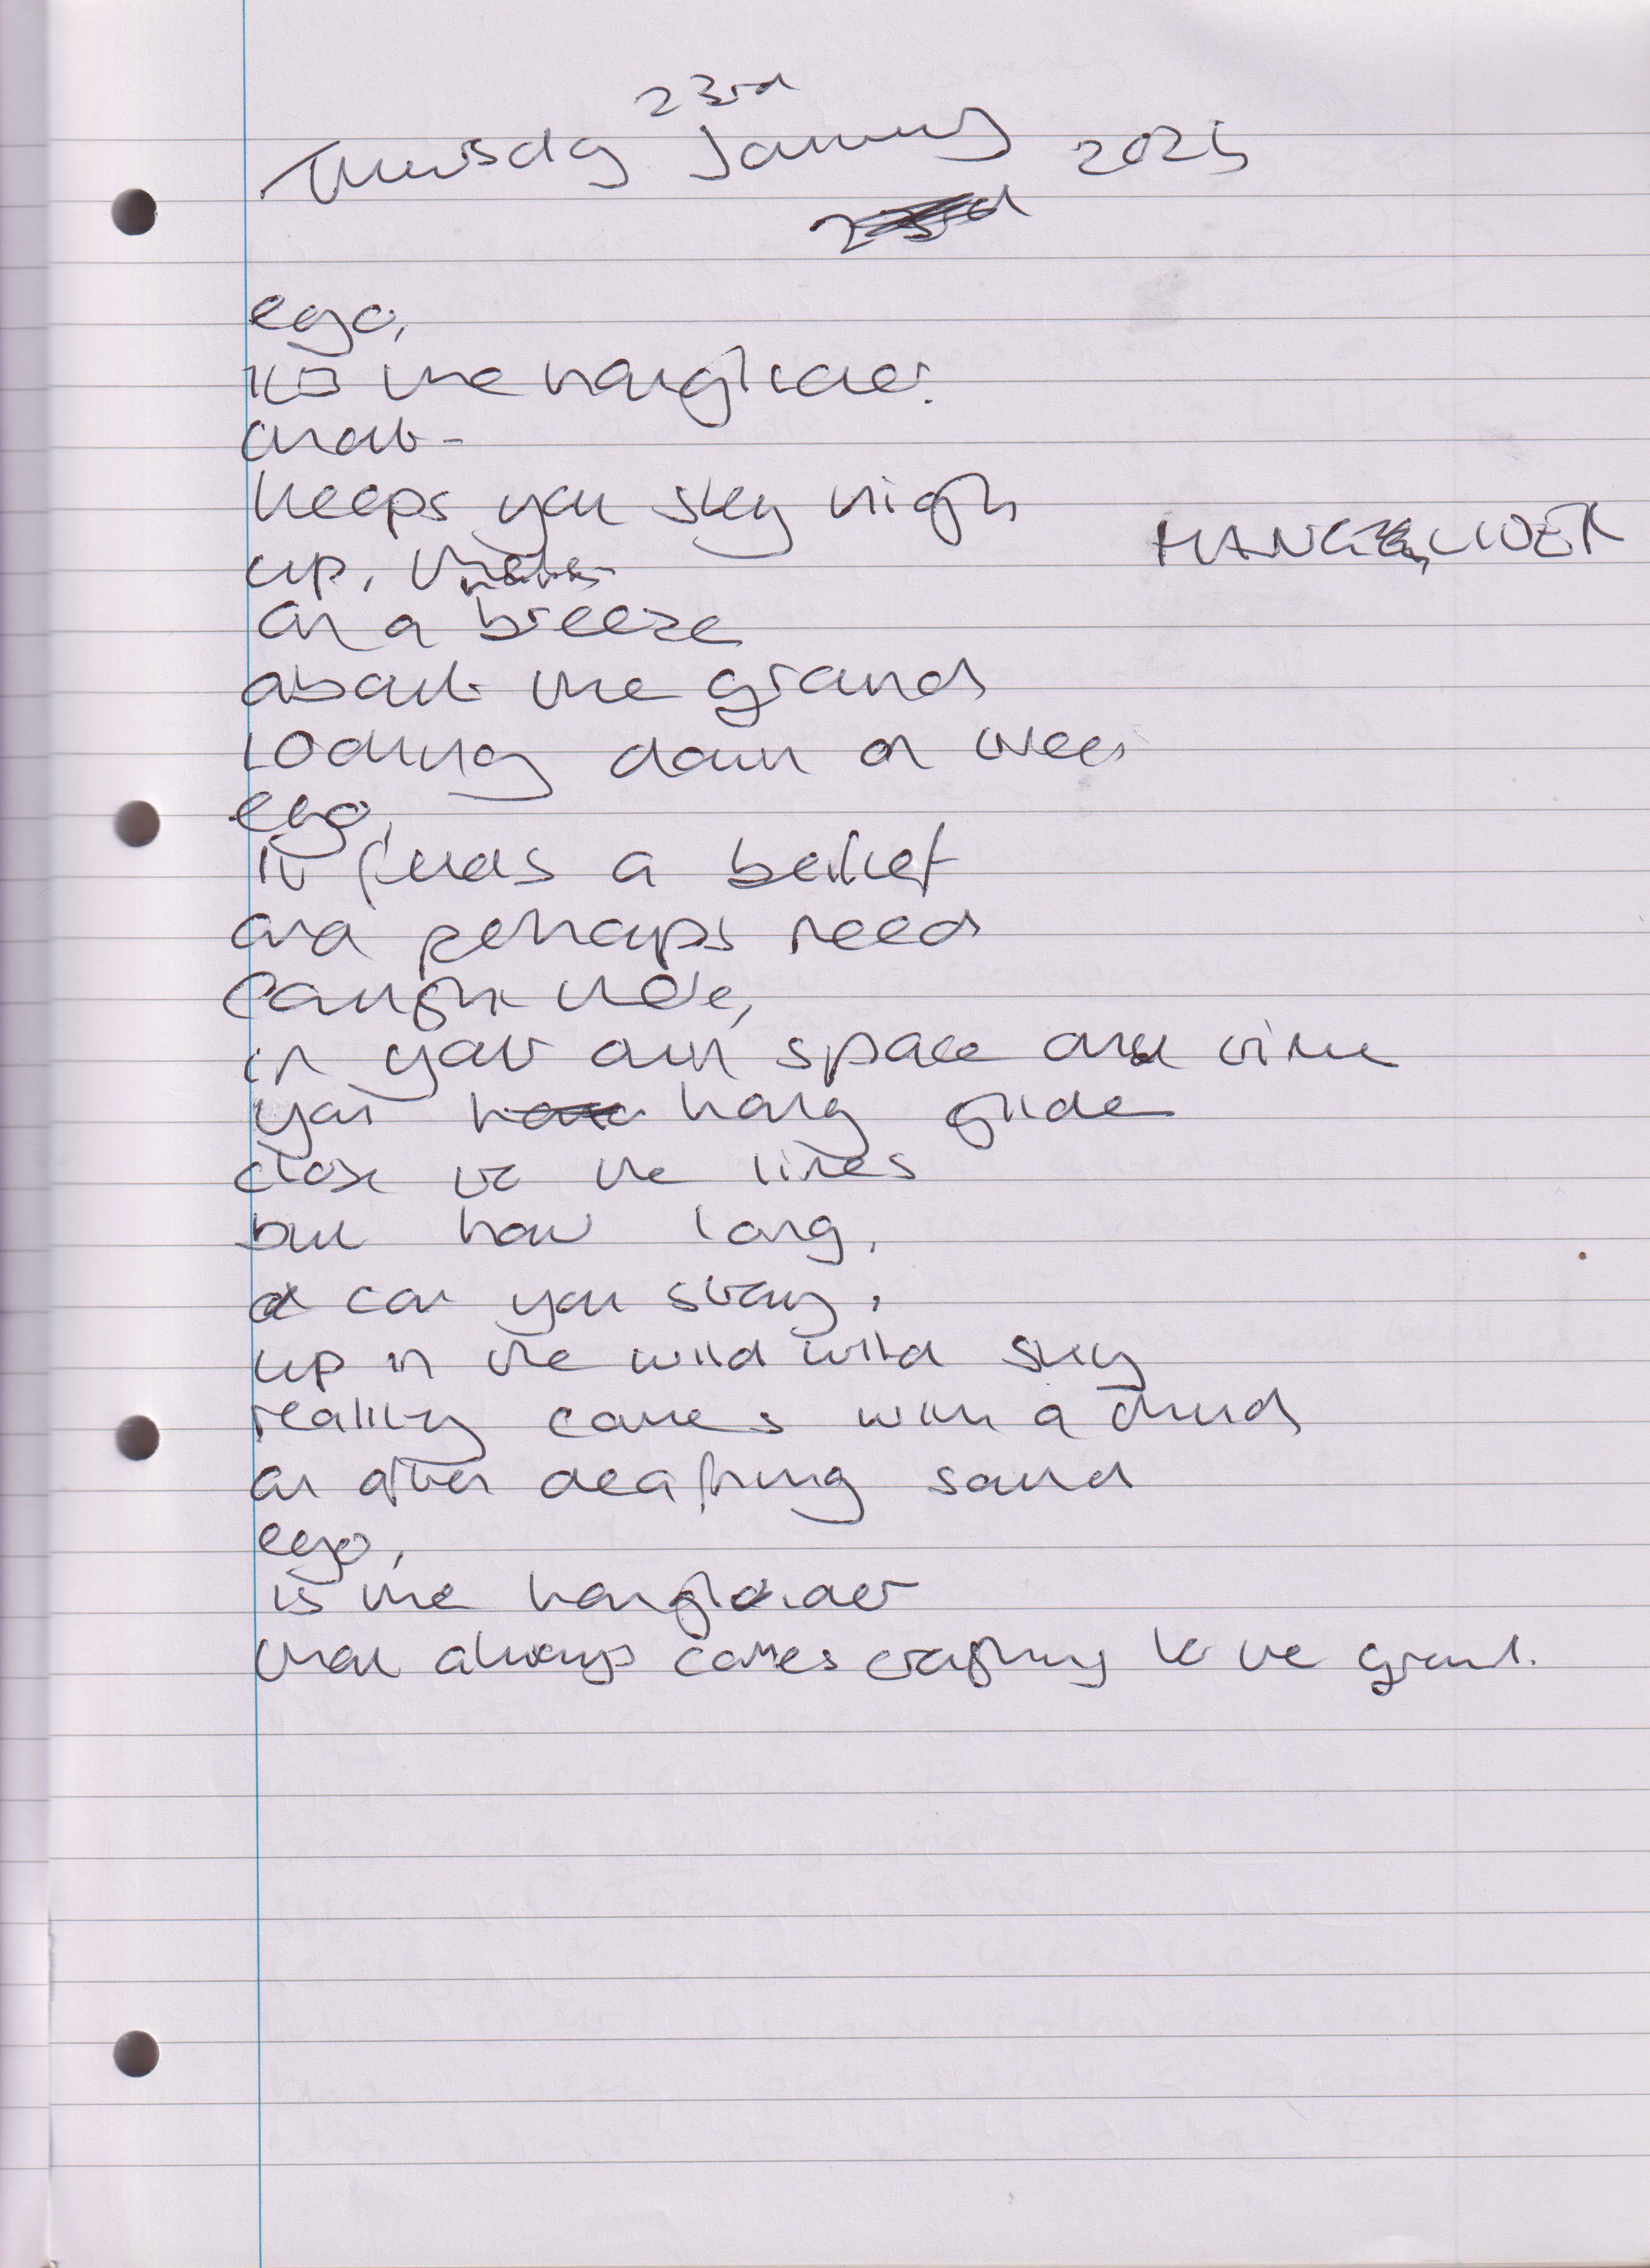 23rd
Thursday January 2025
ego,
its the hanglider
that
keeps you sky high
HANGGLIDER
up, there
on a breeze
about the ground
looking down on trees
ego,
it feeds a belief
and perhaps need
caught
in your own space and time
you hang glide
close to the lines
but how long,
can you stay,
up in the wild wild sky
reality comes with a thud
an often deafning sound
ego,
is the hanglider
that always comes crashing to the ground.